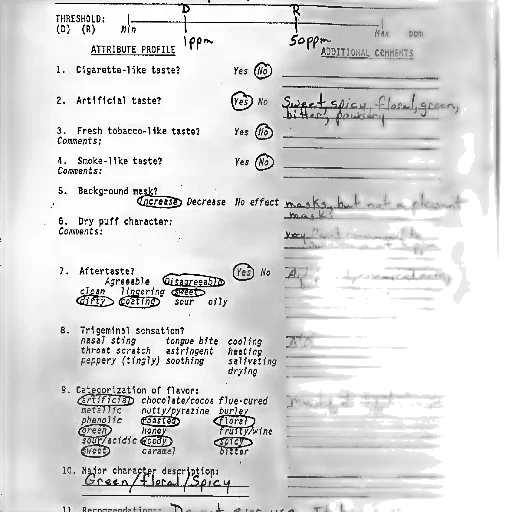 D R
THRESHOLD:
(D) (R) Min Max ppm
1ppm 50ppm
ATTRIBUTE PROFILE ADDITIONAL COMMENTS
1. Cigarette-like taste? Yes No
2. Artificial taste? Yes No Sweet, spicy, floral, green,
bitter, powdery
3. Fresh tobacco-like taste? Yes No
Comments:
4. Smoke-like taste? Yes No
Comments:
5. Background mask?
Increase Decrease No effect masks, but not a pleasant
mask?
6. Dry puff character:
Comments: very
7. Aftertaste? Yes No
Agreeable Disagreeable
clean lingering sweet
dirty coating sour oily
8. Trigeminal sensation?
nasal sting tongue bite cooling
throat scratch astringent heating
peppery (tingly) soothing salivating
drying
9. Categorization of flavor:
artificial chocolate/cocoa flue-cured
metallic nutty/pyrazine burley
phenolic roasted floral
green honey fruity/wine
sour/acidic woody spicy
sweet caramel bitter
10. Major character description:
Green/floral/Spicy
11. Recommendations: Do not